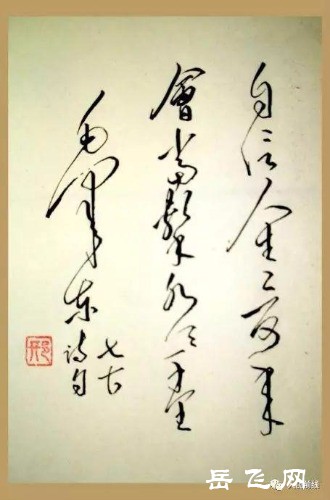 自信人生二百年
會當擊水三千里
毛泽东
七古
诗句
邢
岳飞网